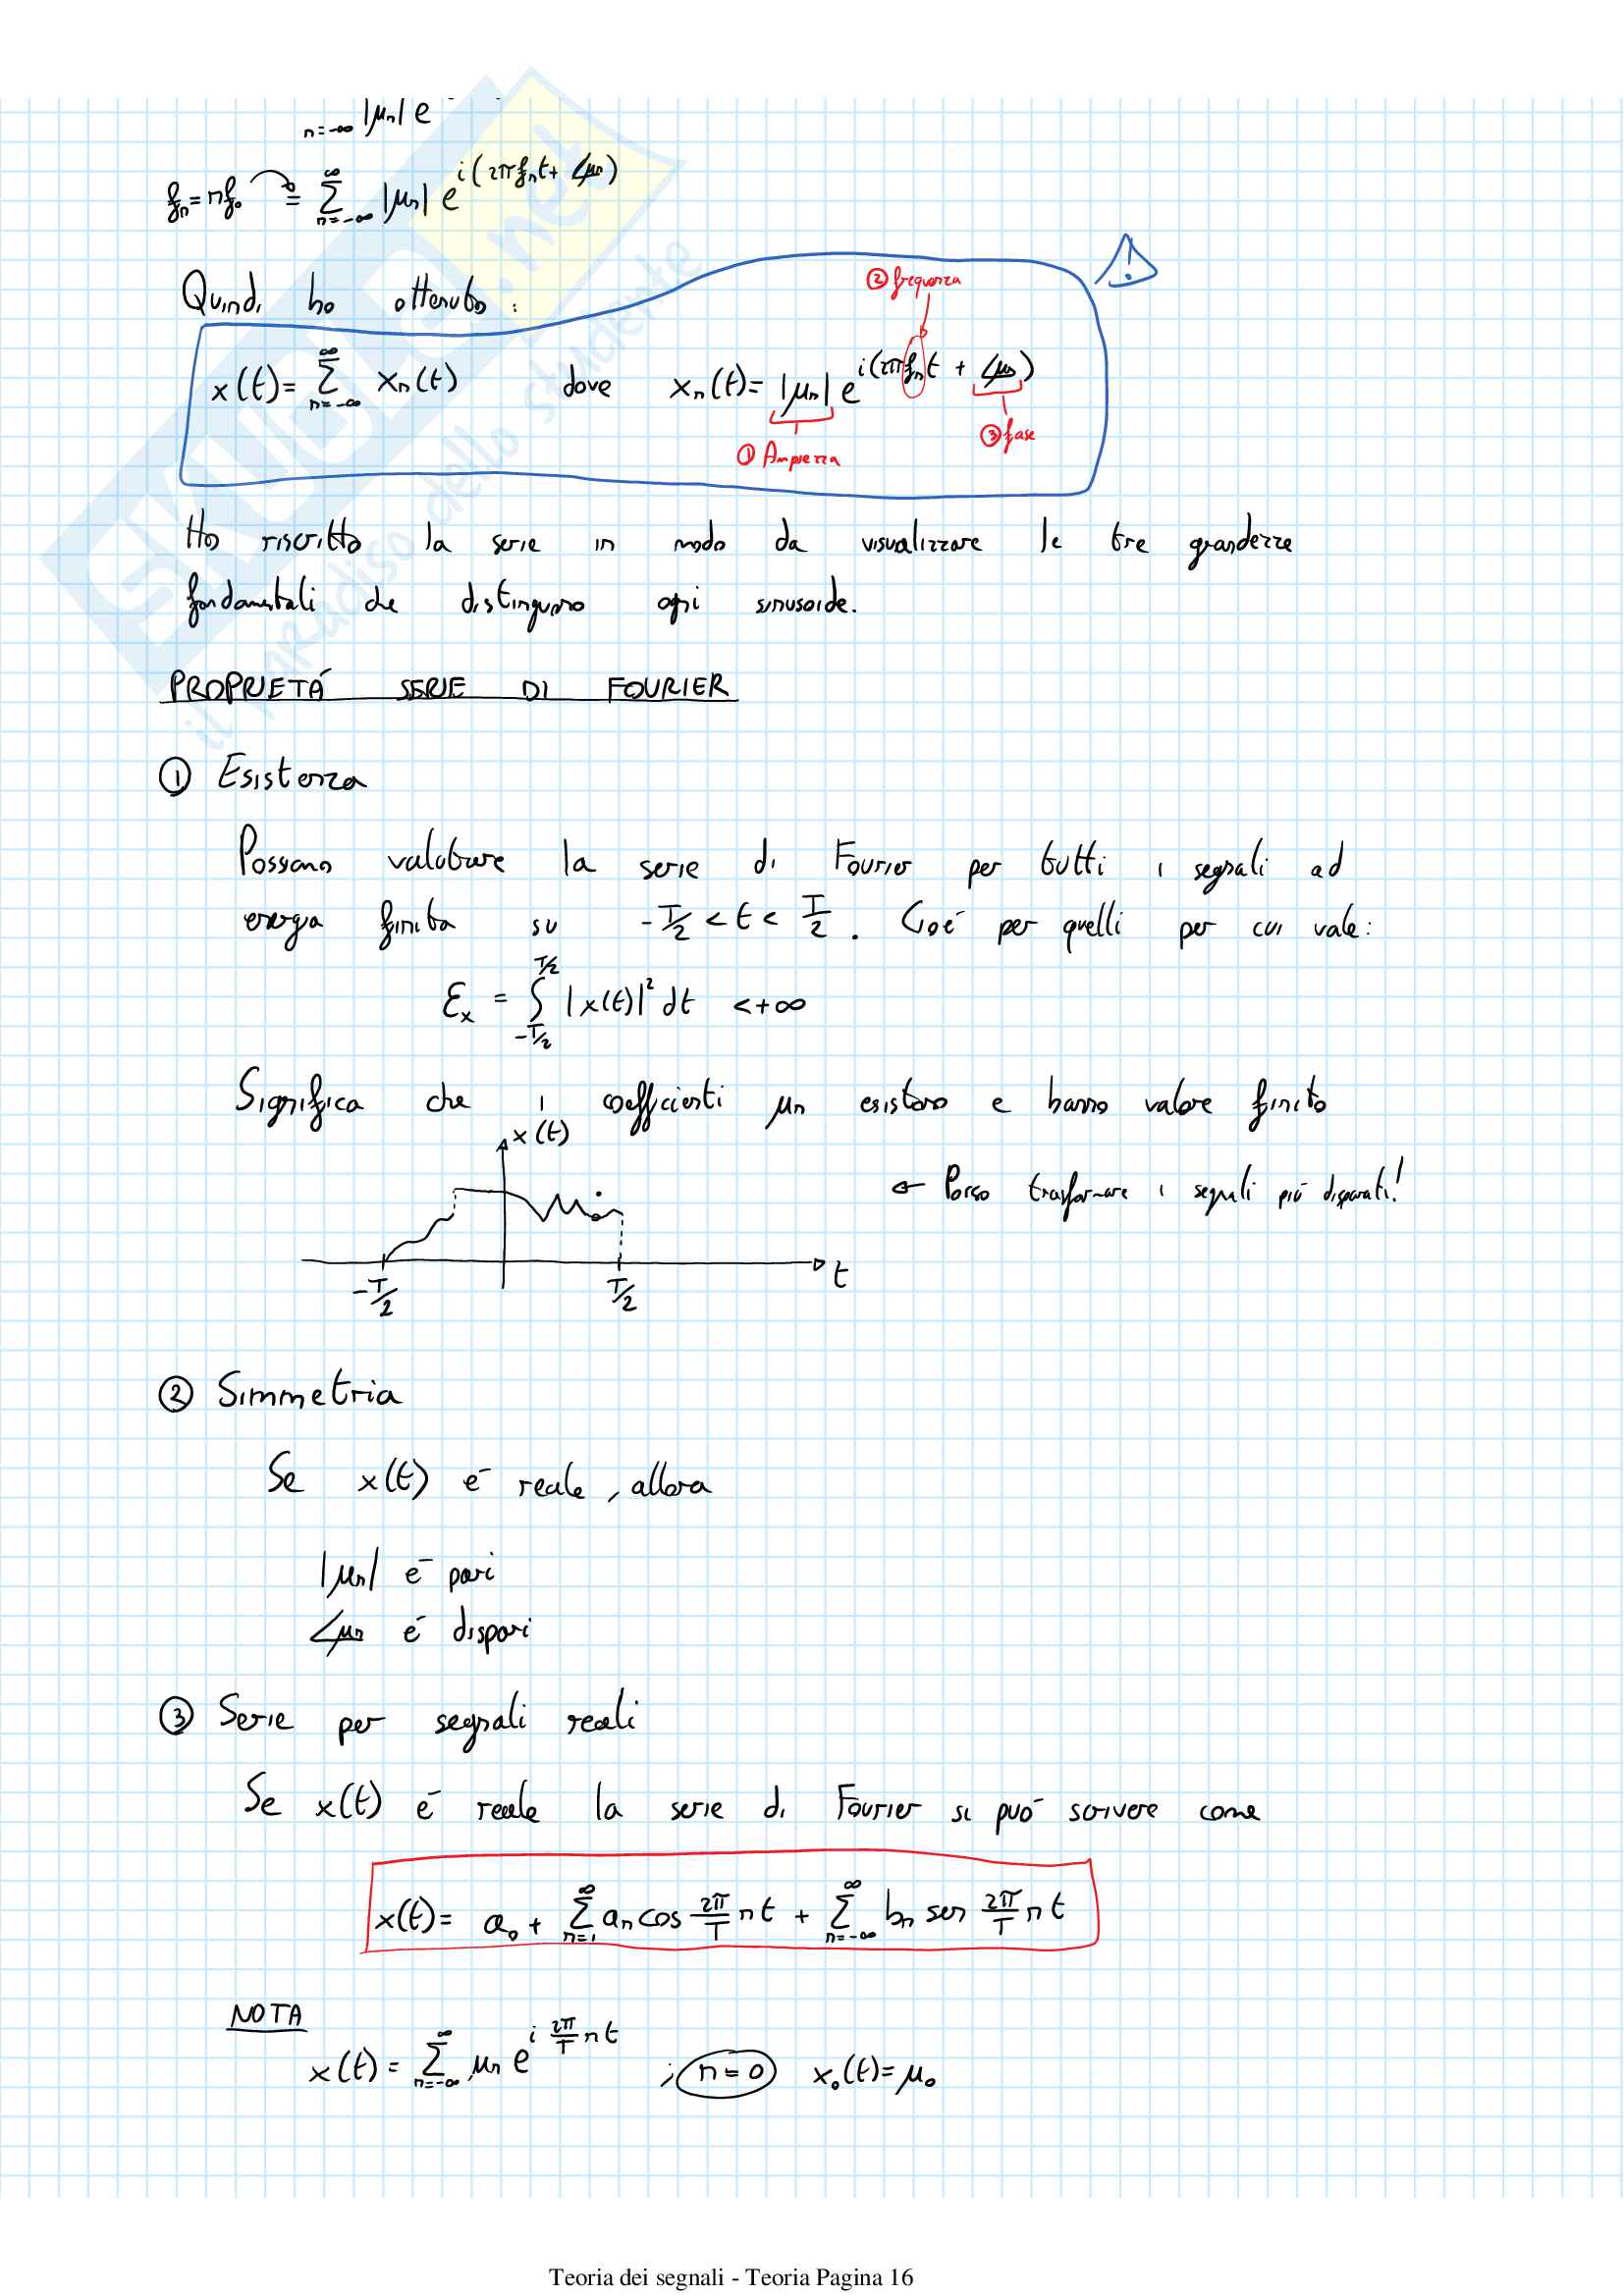 n=-∞ |μn| e
fn=nf₀ = ∑ n=-∞ ∞ |μn| e^i(2πfnt+ ∠μn)
Quindi ho ottenuto :
② frequenza
x(t)= ∑ n=-∞ ∞ xn(t) dove xn(t)= |μn| e^i(2πfnt + ∠μn)
① Ampiezza ③ fase
Ho riscritto la serie in modo da visualizzare le tre grandezze
fondamentali che distinguono ogni sinusoide.
PROPRIETÁ SERIE DI FOURIER
① Esistenza
Possono valutare la serie di Fourier per tutti i segnali ad
energia finita su -T/2 < t < T/2 . Cioé per quelli per cui vale:
Ex = ∫ -T/2 T/2 |x(t)|² dt <+∞
Significa che i coefficienti μn esistono e hanno valore finito
x(t)
← Posso trasformare i segnali più disparati!
t
-T/2 T/2
② Simmetria
Se x(t) é reale, allora
|μn| é pari
∠μn é dispari
③ Serie per segnali reali
Se x(t) é reale la serie di Fourier si puó scrivere come
x(t)= a₀ + ∑ n=1 ∞ an cos 2π/T nt + ∑ n=-∞ ∞ bn sen 2π/T nt
NOTA
x(t) = ∑ n=-∞ ∞ μn e^i 2π/T nt ; n=0 x₀(t)=μ₀
Teoria dei segnali - Teoria Pagina 16
SKUOLA.net
il paradiso dello studente